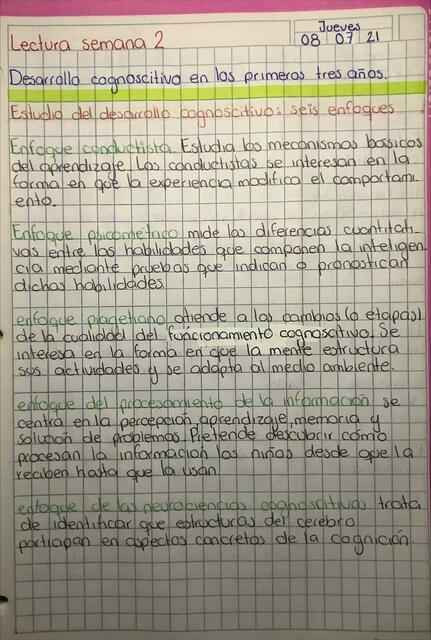 Jueves
Lectura semana 2
08 07 21
Desarrollo cognoscitivo en los primeros tres años.
Estudio del desarrollo cognoscitivo: seis enfoques
Enfoque conductista. Estudia los mecanismos basicos
del aprendizaje. Los conductistas se interesan en la
forma en que la experiencia modifica el comportami
ento.
Enfoque psicometrico mide las diferencias cuantitati-
vas entre las habilidades que componen la inteligen
cia mediante pruebas que indican o pronostican
dichas habilidades.
enfoque piagetiano atiende a los cambios (o etapas)
de la cualidad del funcionamiento cognoscitivo. Se
interesa en la forma en que la mente estructura
sus actividades y se adapta al medio ambiente.
enfoque del procesamiento de la información se
centra en la percepción, aprendizaje, memoria y
solución de problemas. Pretende descubrir cómo
procesan la información los niños desde que la
reciben hasta que la usan.
enfoque de las neurociencias cognoscitivas trata
de identificar que estructuras del cerebro
participan en aspectos concretos de la cognición.